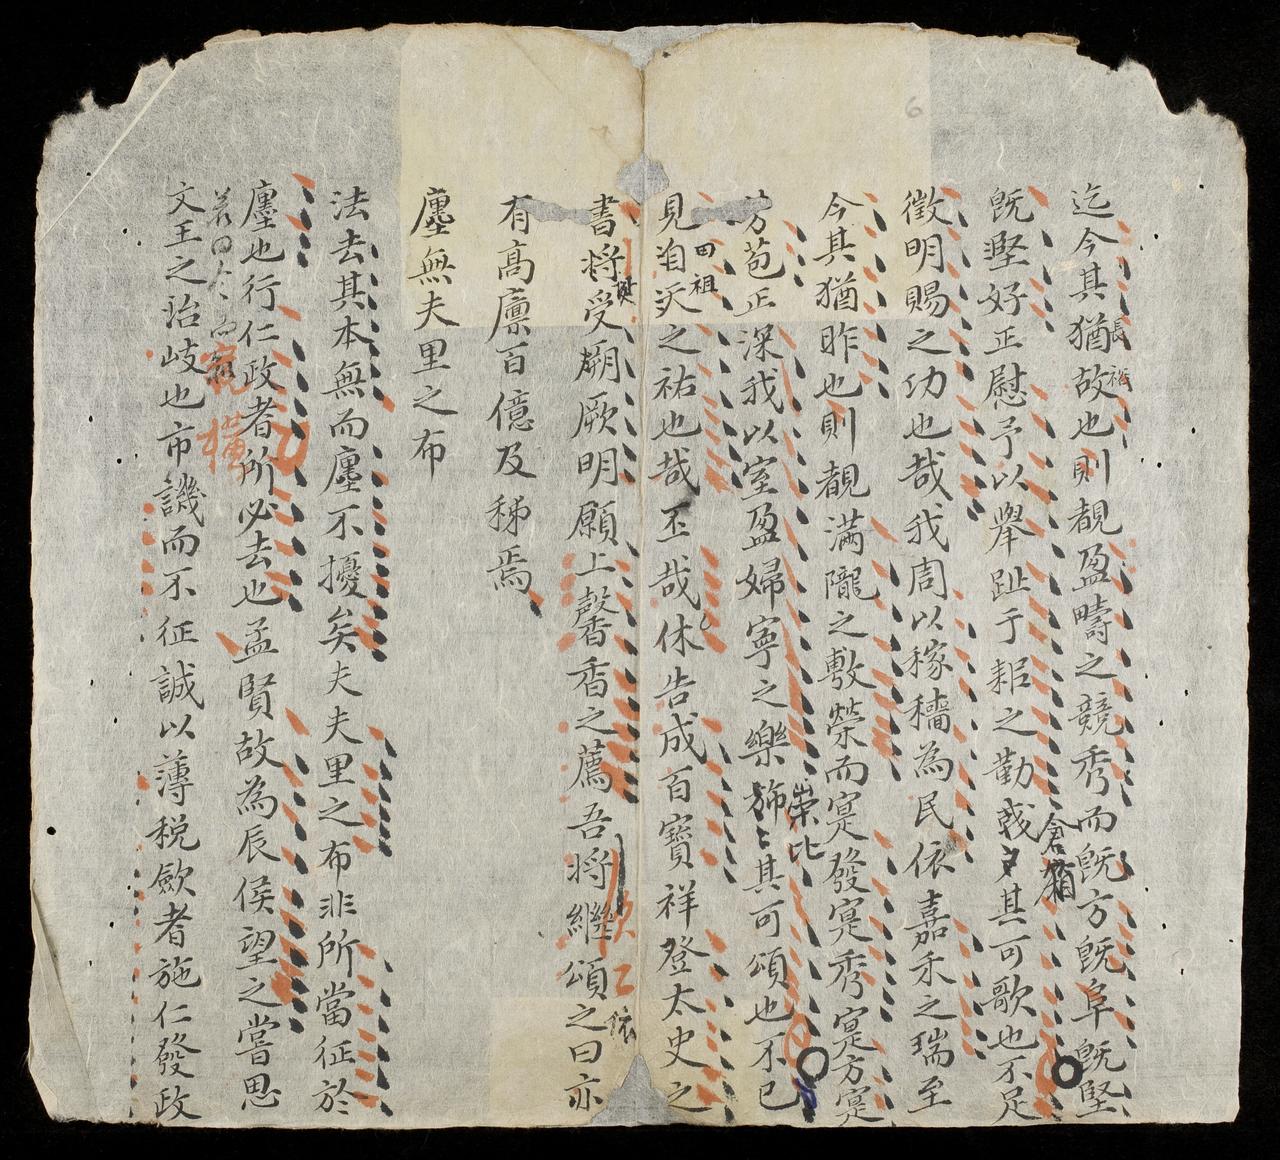 迄今其猶故也則覩盈疇之競秀而既方既阜既堅
長 裕
既堅好正慰予以舉趾于耜之勤彧彧其可歌也不足
倉箱
徵明賜之功也哉我周以稼穡為民依嘉禾之瑞至
今其猶昨也則覩滿隴之敷榮而寔發寔秀寔方寔
苞正深我以室盈婦寧之樂旆旆其可頌也不已
崇比
見自天之祐也哉丕哉休告成百寶祥登太史之
田祖
書將受厥明願上馨香之薦吾將繼頌之曰亦
依
有高廩百億及秭焉
廛無夫里之布
法去其本無而廛不擾矣夫夫里之布非所當征於
廛也行仁政者所必去也孟賢故為辰侯望之嘗思
文王之治岐也市譏而不征誠以薄稅歛者施仁發政